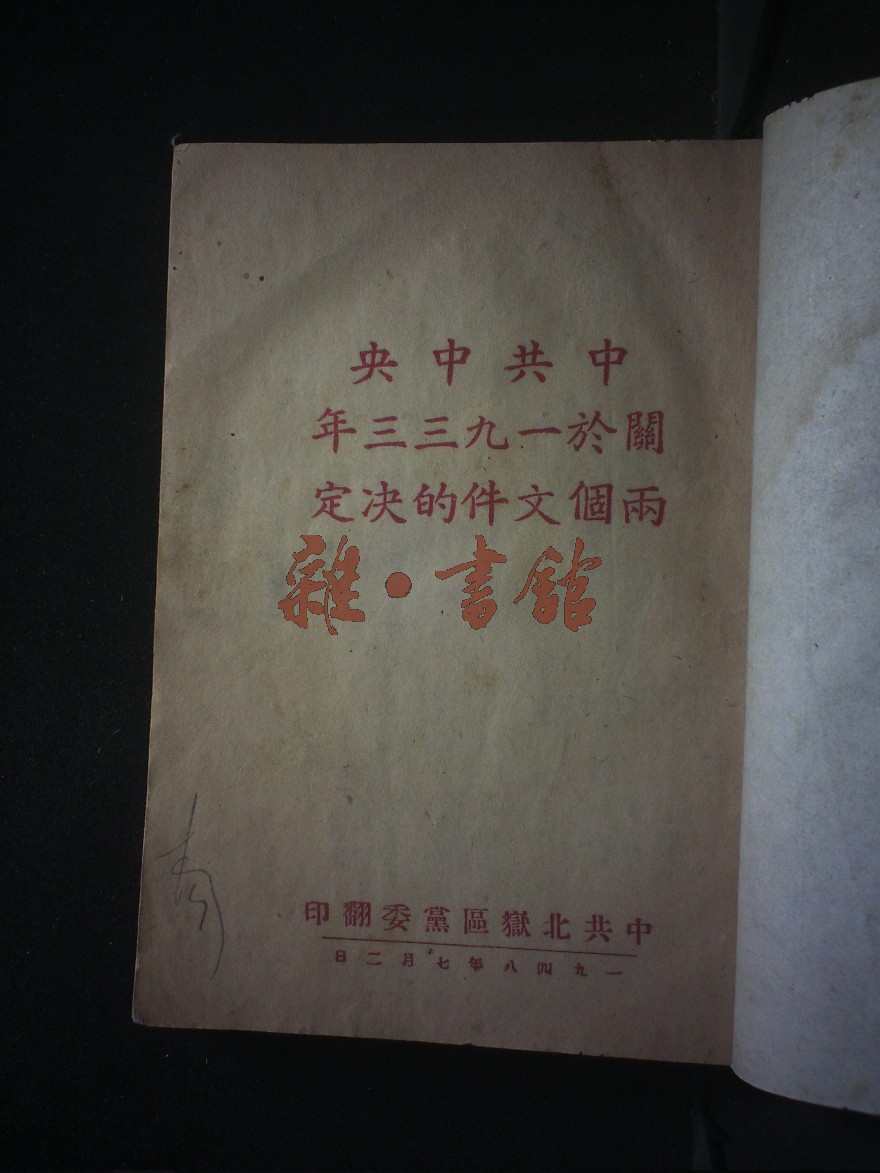 中共中央
關於一九三三年
兩個文件的決定
雜·書館
中共北嶽區黨委翻印
一九四八年七月二日